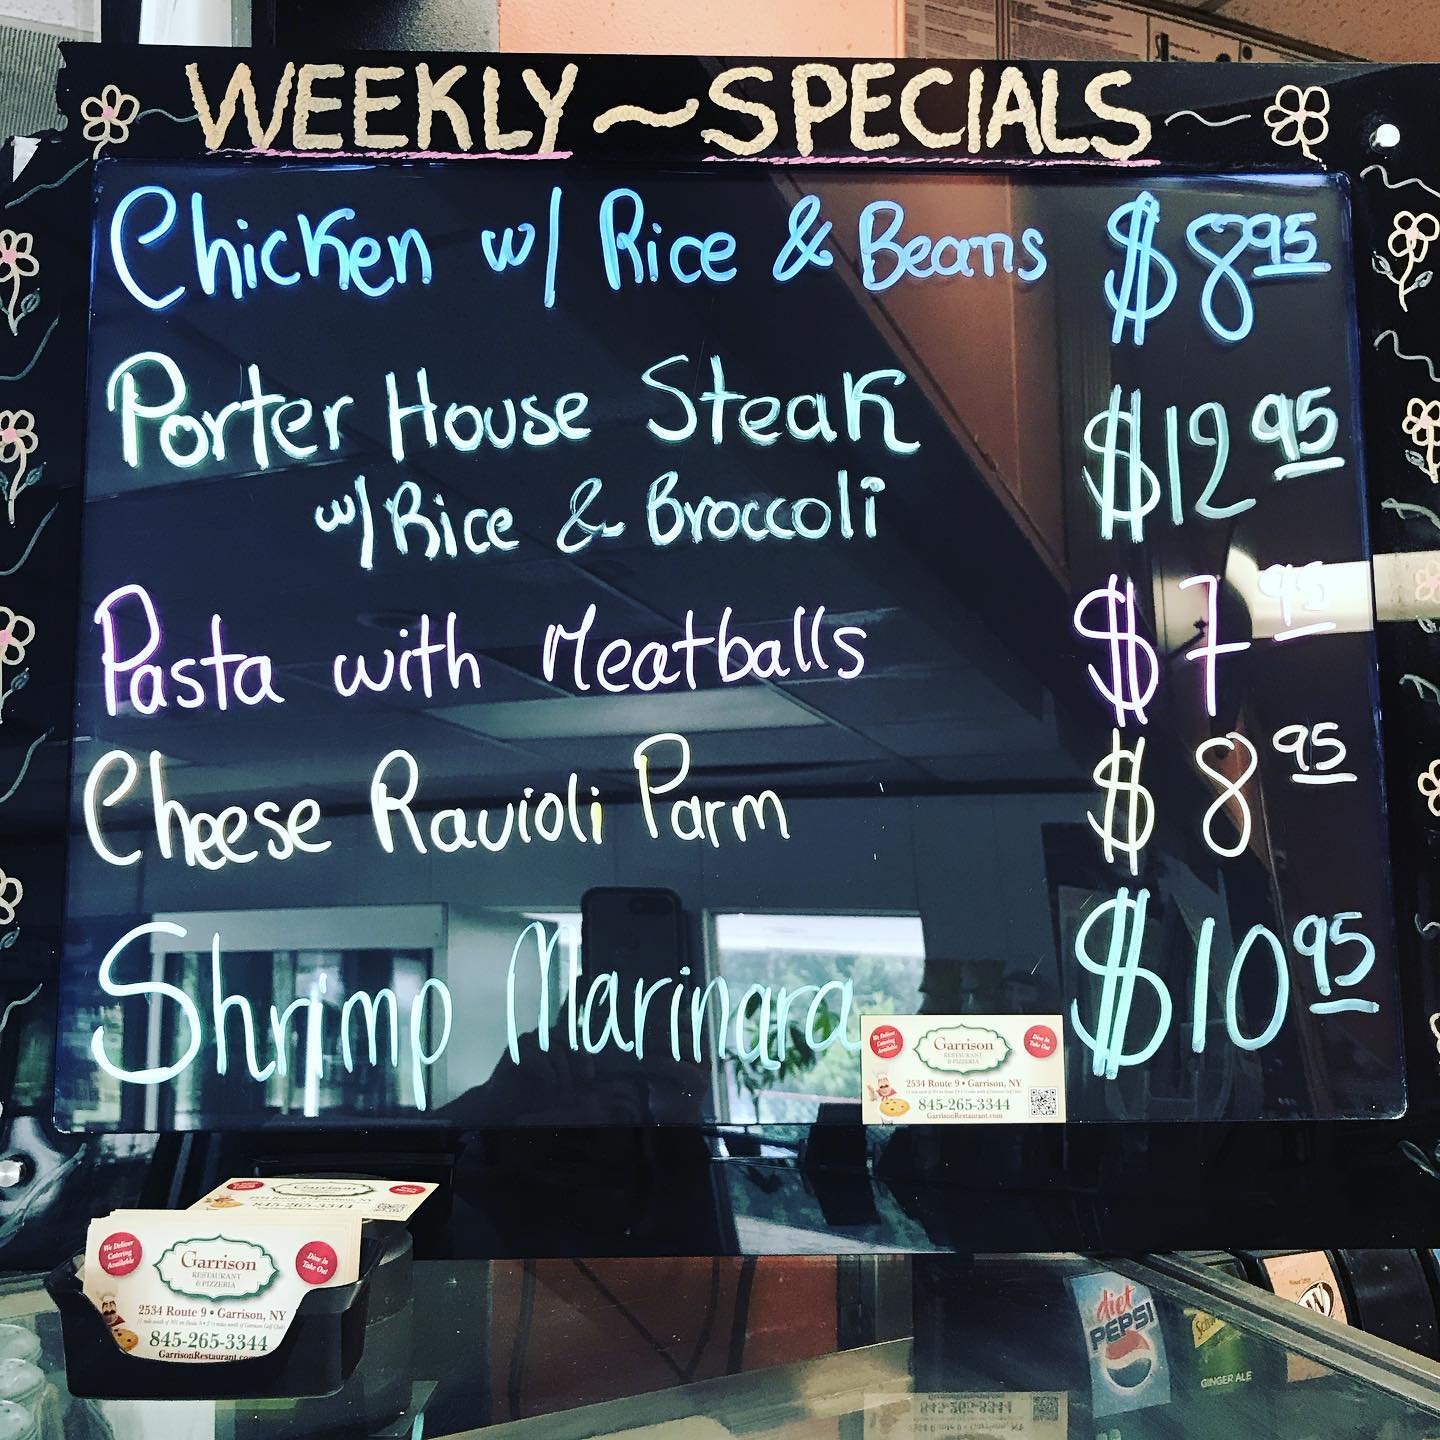 WEEKLY ~ SPECIALS
Chicken w/ Rice & Beans $8.95
Porter House Steak $12.95
w/ Rice & Broccoli
Pasta with Meatballs $7.95
Cheese Ravioli Parm $8.95
Shrimp Marinara $10.95
We Deliver
Catering
Available
Garrison
RESTAURANT
& PIZZERIA
Dine In
Take Out
2534 Route 9 • Garrison, NY
845-265-3344
GarrisonRestaurant.com
Garrison
2534 Route 9 • Garrison, NY
845-265-3344
We Deliver
Catering
Available
Garrison
RESTAURANT
& PIZZERIA
Dine In
Take Out
2534 Route 9 • Garrison, NY
845-265-3344
GarrisonRestaurant.co
diet
PEPSI
GINGER ALE